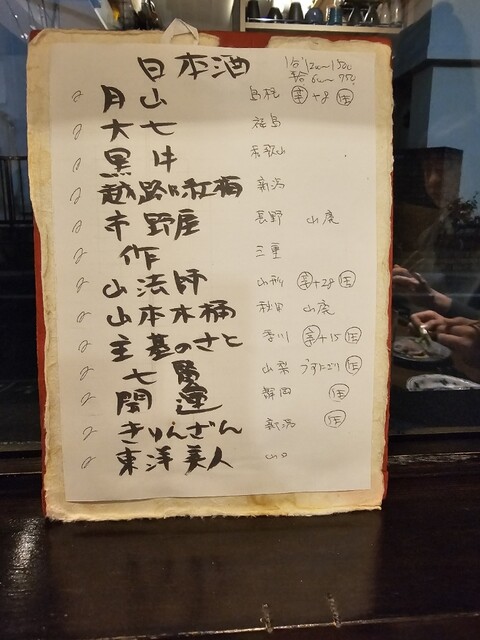 日本酒 1合 1200~1500
半合 600~750
月山 島根 辛+8 生
大七 福島
黒牛 和歌山
越路吹紅梅 新潟
木野屋 長野 山廃
作 三重
山法師 山形 辛+28 生
山本木桶 秋田 山廃
主基のさと 香川 辛+15 生
七賢 山梨 うすにごり 生
開運 静岡 生
きりんざん 新潟 生
東洋美人 山口